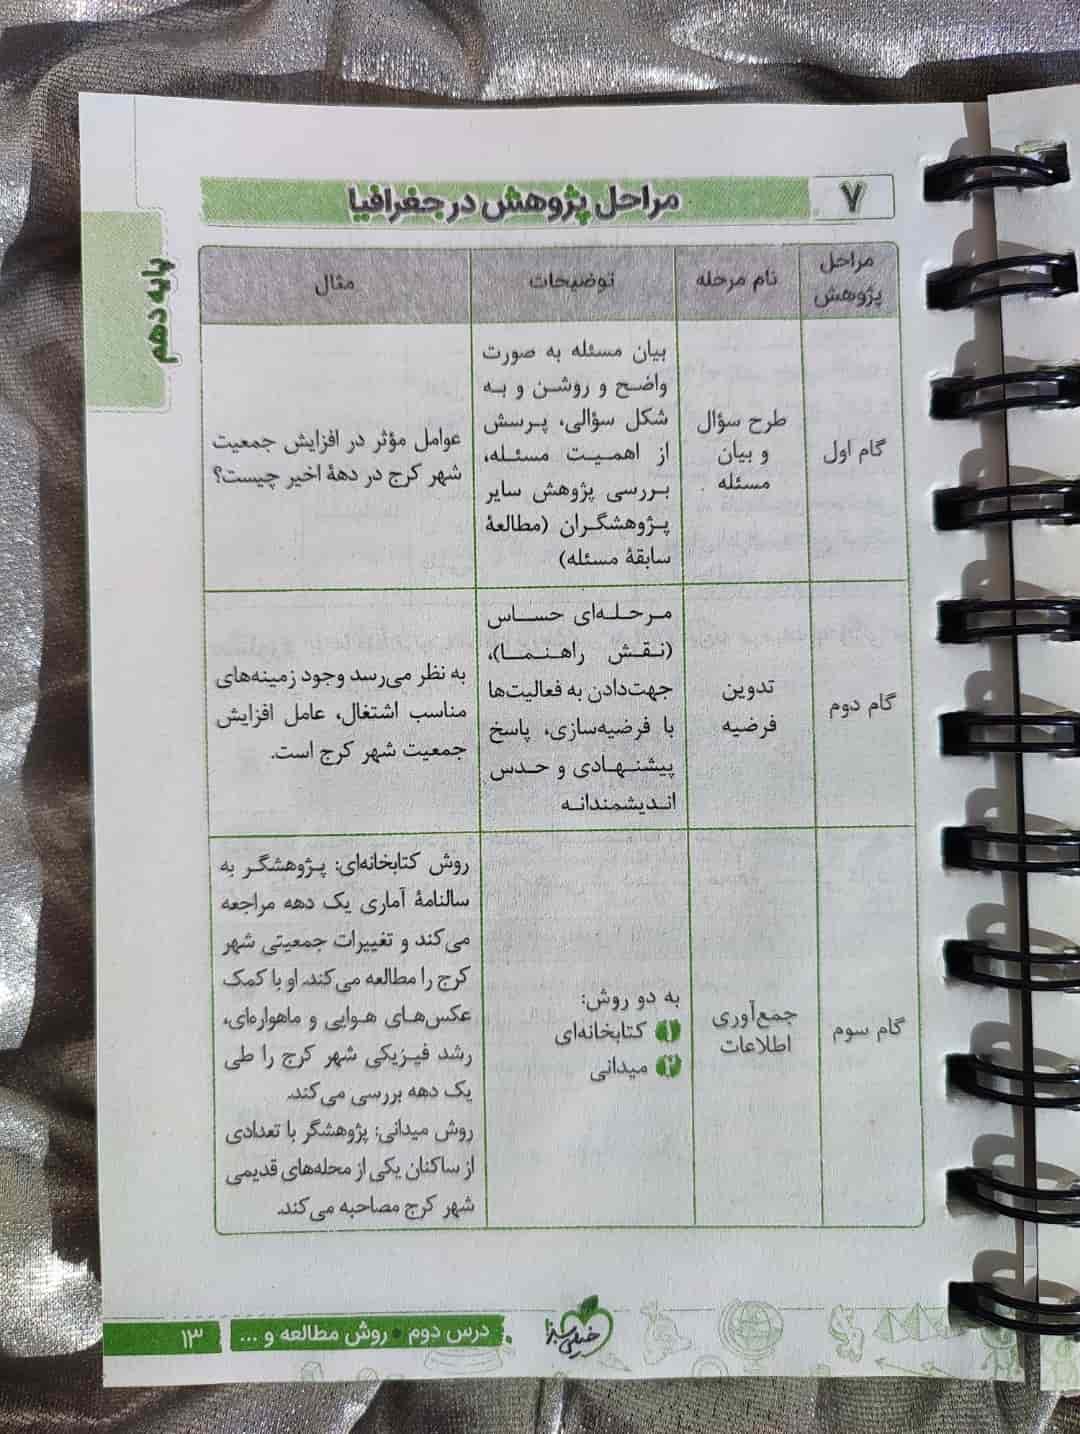 ۷
مراحل پژوهش در جغرافیا
پایه دهم
مراحل
پژوهش
نام مرحله
توضیحات
مثال
گام اول
طرح سؤال
و بیان
مسئله
بیان مسئله به صورت
واضح و روشن و به
شکل سؤالی، پرسش
از اهمیت مسئله،
بررسی پژوهش سایر
پژوهشگران (مطالعهٔ
سابقهٔ مسئله)
عوامل مؤثر در افزایش جمعیت
شهر کرج در دههٔ اخیر چیست؟
گام دوم
تدوین
فرضیه
مرحله‌ای حساس
(نقش راهنما)،
جهت‌دادن به فعالیت‌ها
با فرضیه‌سازی، پاسخ
پیشنهادی و حدس
اندیشمندانه
به نظر می‌رسد وجود زمینه‌های
مناسب اشتغال، عامل افزایش
جمعیت شهر کرج است.
گام سوم
جمع‌آوری
اطلاعات
به دو روش:
۱ کتابخانه‌ای
۲ میدانی
روش کتابخانه‌ای: پژوهشگر به
سالنامهٔ آماری یک دهه مراجعه
می‌کند و تغییرات جمعیتی شهر
کرج را مطالعه می‌کند. او با کمک
عکس‌های هوایی و ماهواره‌ای،
رشد فیزیکی شهر کرج را طی
یک دهه بررسی می‌کند.
روش میدانی: پژوهشگر با تعدادی
از ساکنان یکی از محله‌های قدیمی
شهر کرج مصاحبه می‌کند.
خیلی سبز
درس دوم • روش مطالعه و ...
۱۳